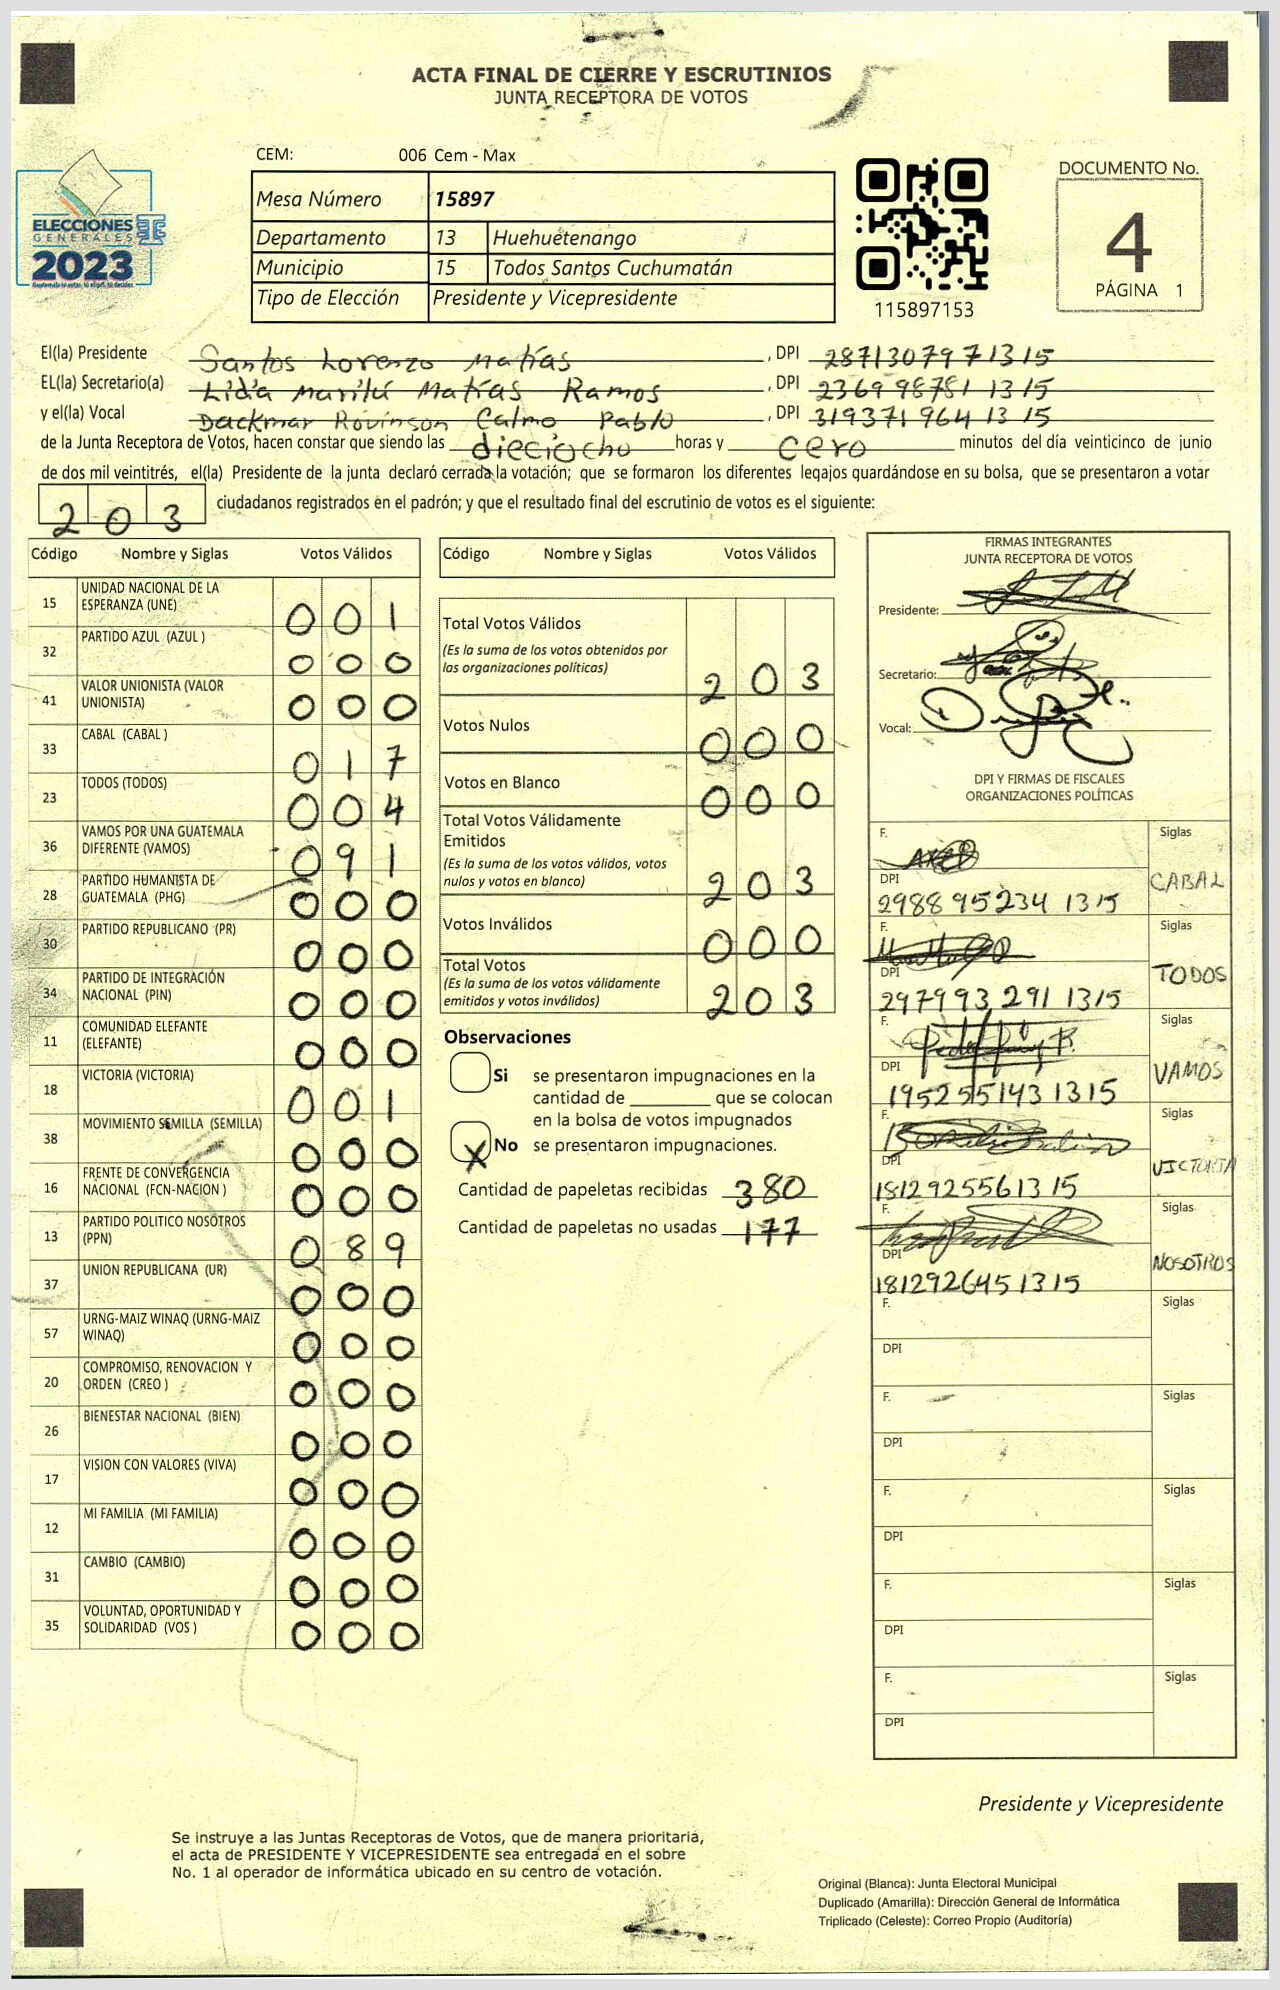 ACTA FINAL DE CIERRE Y ESCRUTINIOS
JUNTA RECEPTORA DE VOTOS
CEM: 006 Cem - Max
ELECCIONES
GENERALES
2023
Mesa Número 15897
Departamento 13 Huehuetenango
Municipio 15 Todos Santos Cuchumatán
Tipo de Elección Presidente y Vicepresidente
115897153
DOCUMENTO No.
4
PÁGINA 1
El(la) Presidente Santos Lorenzo Matías , DPI 287130797 1315
EL(la) Secretario(a) Lidia Marilú Matías Ramos , DPI 236998781 1315
y el(la) Vocal Dackmar Rovinson Calmo Pablo , DPI 319371964 13 15
de la Junta Receptora de Votos, hacen constar que siendo las dieciocho horas y cero minutos del día veinticinco de junio
de dos mil veintitrés, el(la) Presidente de la junta declaró cerrada la votación; que se formaron los diferentes legajos quardándose en su bolsa, que se presentaron a votar
203 ciudadanos registrados en el padrón; y que el resultado final del escrutinio de votos es el siguiente:
Código Nombre y Siglas Votos Válidos
15 UNIDAD NACIONAL DE LA ESPERANZA (UNE) 001
32 PARTIDO AZUL (AZUL ) 000
41 VALOR UNIONISTA (VALOR UNIONISTA) 000
33 CABAL (CABAL ) 017
23 TODOS (TODOS) 004
36 VAMOS POR UNA GUATEMALA DIFERENTE (VAMOS) 091
28 PARTIDO HUMANISTA DE GUATEMALA (PHG) 000
30 PARTIDO REPUBLICANO (PR) 000
34 PARTIDO DE INTEGRACIÓN NACIONAL (PIN) 000
11 COMUNIDAD ELEFANTE (ELEFANTE) 000
18 VICTORIA (VICTORIA) 001
38 MOVIMIENTO SEMILLA (SEMILLA) 000
16 FRENTE DE CONVERGENCIA NACIONAL (FCN-NACION ) 000
13 PARTIDO POLITICO NOSOTROS (PPN) 089
37 UNION REPUBLICANA (UR) 000
57 URNG-MAIZ WINAQ (URNG-MAIZ WINAQ) 000
20 COMPROMISO, RENOVACION Y ORDEN (CREO ) 000
26 BIENESTAR NACIONAL (BIEN) 000
17 VISION CON VALORES (VIVA) 000
12 MI FAMILIA (MI FAMILIA) 000
31 CAMBIO (CAMBIO) 000
35 VOLUNTAD, OPORTUNIDAD Y SOLIDARIDAD (VOS ) 000
Código Nombre y Siglas Votos Válidos
Total Votos Válidos 203
(Es la suma de los votos obtenidos por
las organizaciones políticas)
Votos Nulos 000
Votos en Blanco 000
Total Votos Válidamente
Emitidos 203
(Es la suma de los votos válidos, votos
nulos y votos en blanco)
Votos Inválidos 000
Total Votos 203
(Es la suma de los votos válidamente
emitidos y votos inválidos)
Observaciones
Si se presentaron impugnaciones en la
cantidad de ________ que se colocan
en la bolsa de votos impugnados
X No se presentaron impugnaciones.
Cantidad de papeletas recibidas 380
Cantidad de papeletas no usadas 177
FIRMAS INTEGRANTES
JUNTA RECEPTORA DE VOTOS
Presidente:
Secretario:
Vocal:
DPI Y FIRMAS DE FISCALES
ORGANIZACIONES POLÍTICAS
F. Siglas
DPI CABAL
2988 95234 1315
F. Siglas
DPI TODOS
297993 291 1315
F. Siglas
DPI VAMOS
195255143 1315
F. Siglas
DPI VICTORIA
181292556 1315
F. Siglas
DPI NOSOTROS
181292645 1315
F. Siglas
DPI
F. Siglas
DPI
F. Siglas
DPI
F. Siglas
DPI
F. Siglas
DPI
Presidente y Vicepresidente
Se instruye a las Juntas Receptoras de Votos, que de manera prioritaria,
el acta de PRESIDENTE Y VICEPRESIDENTE sea entregada en el sobre
No. 1 al operador de informática ubicado en su centro de votación.
Original (Blanca): Junta Electoral Municipal
Duplicado (Amarilla): Dirección General de Informática
Triplicado (Celeste): Correo Propio (Auditoría)